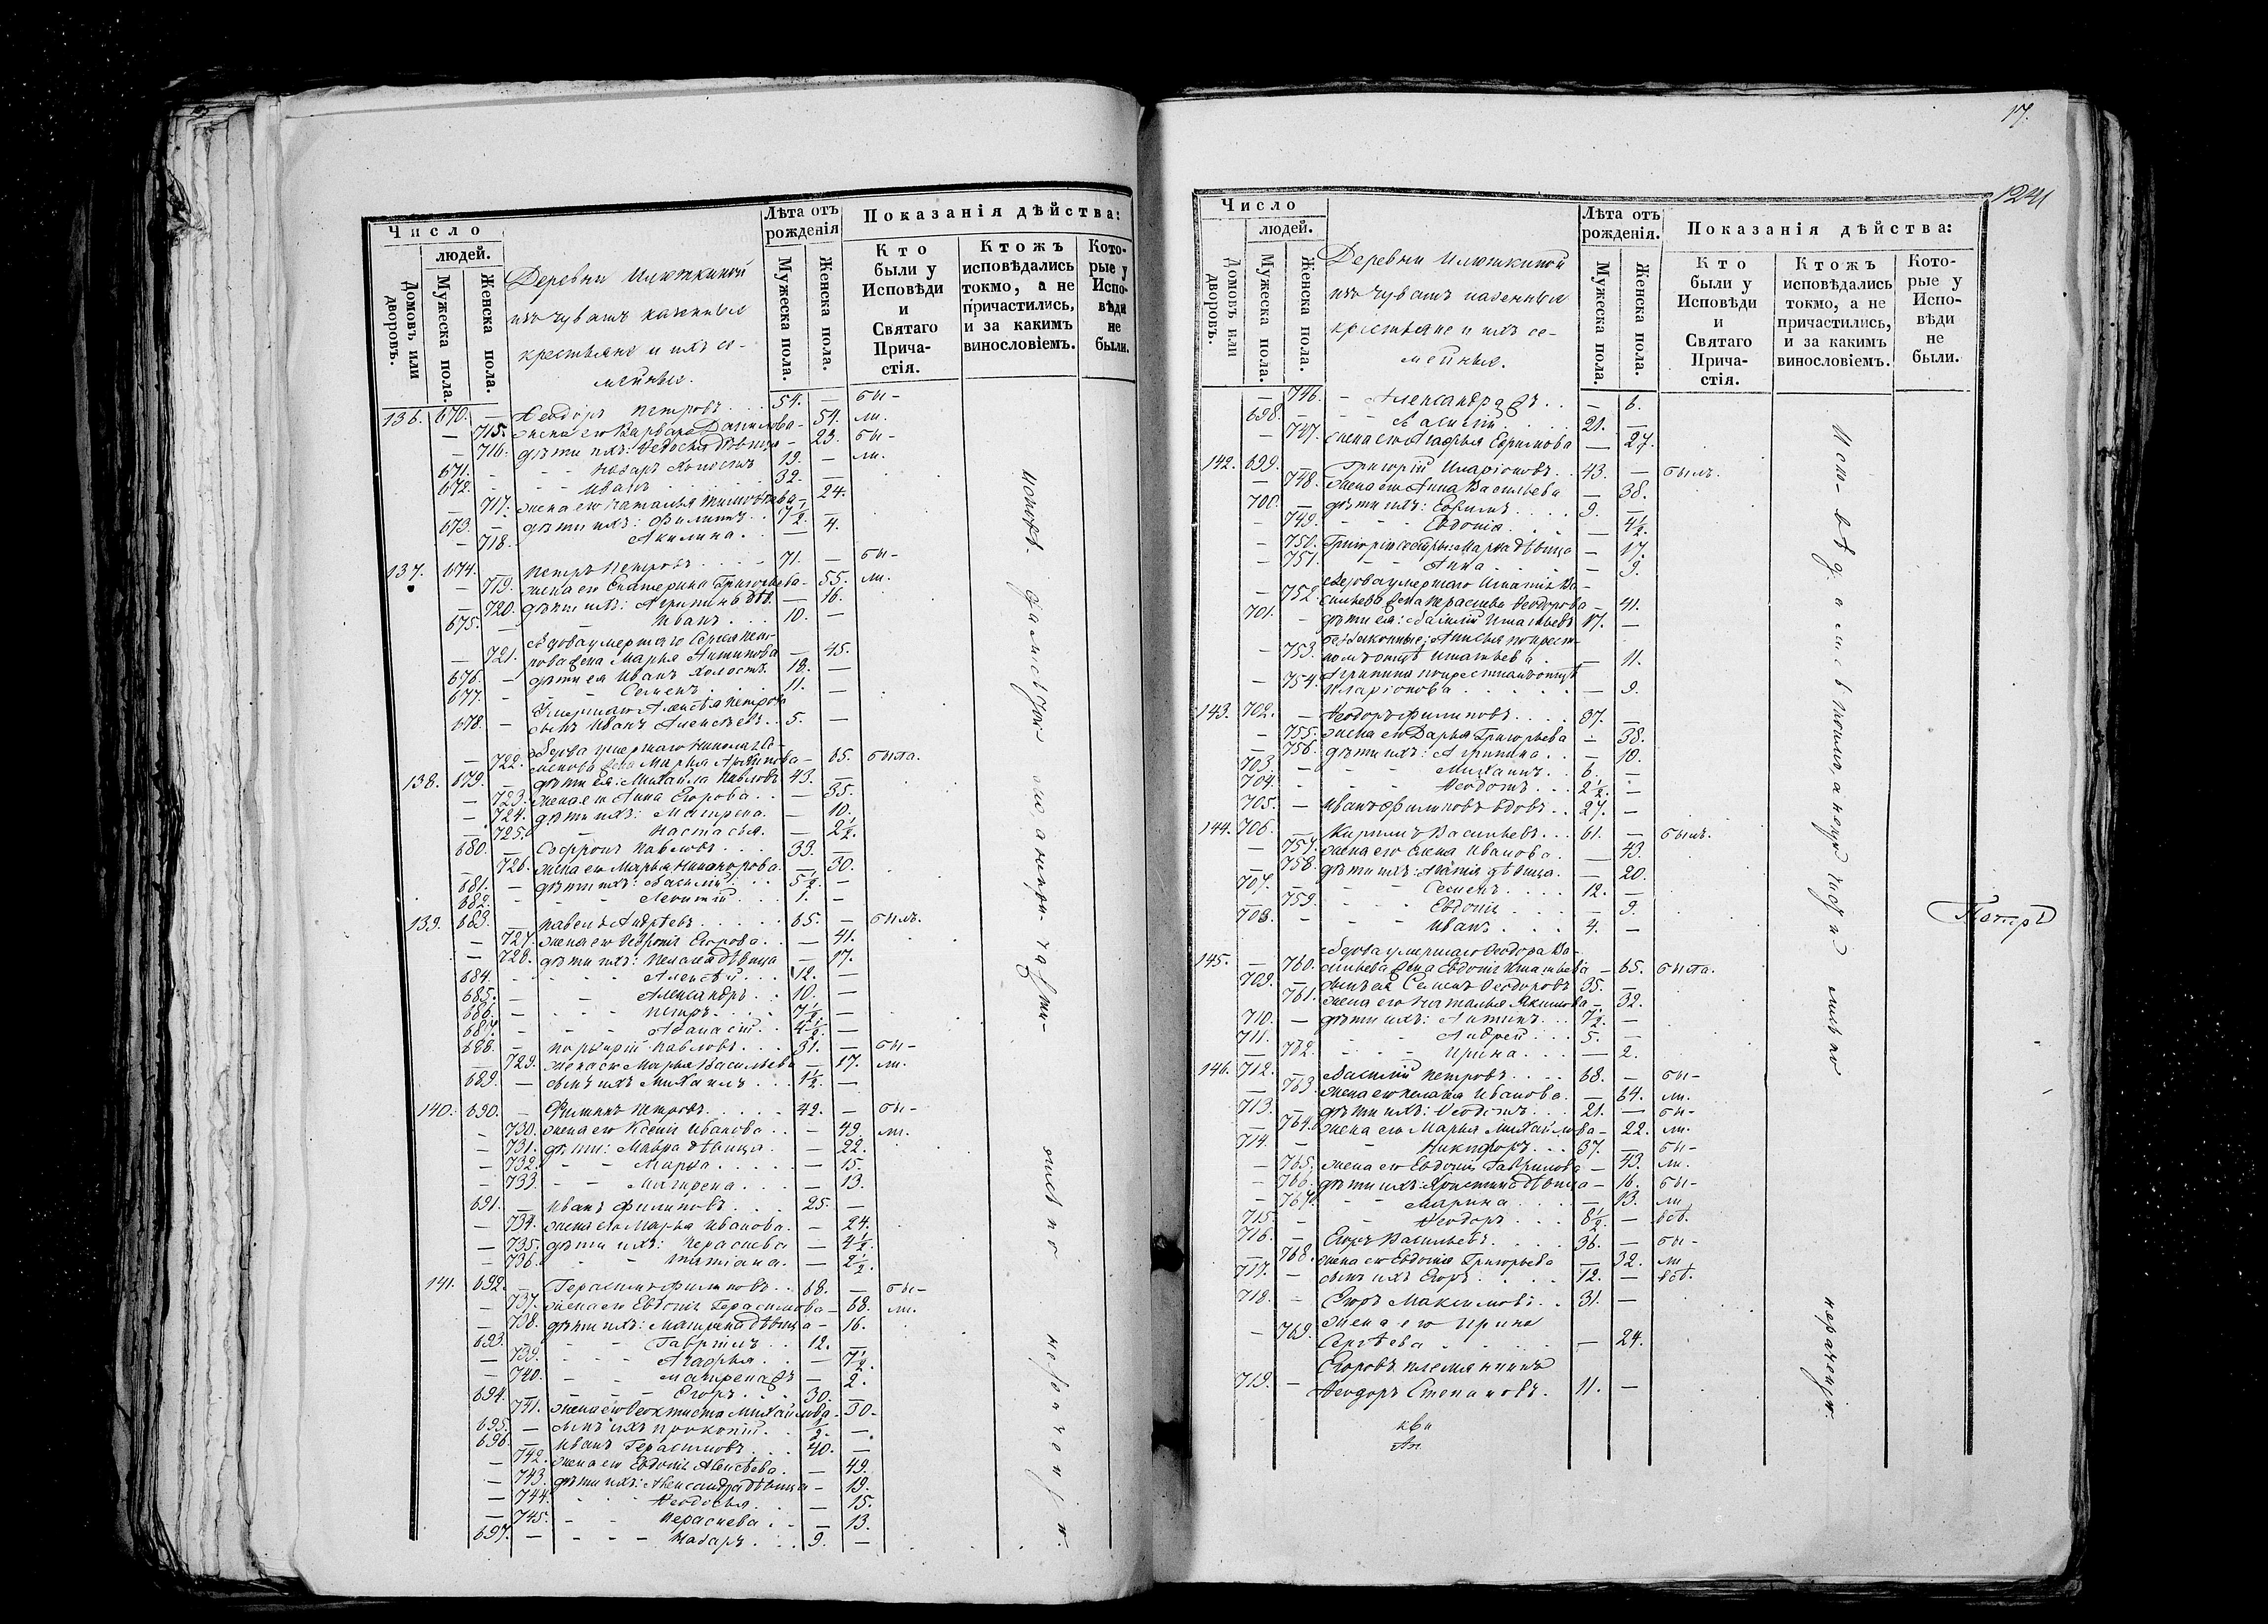 Число
людей.
Домовъ или дворовъ.
Мужеска пола.
Женска пола.
Деревни Илюткиной
изъ чувашъ казенные
крестьяне и ихъ се-
мейные.
Лѣта отъ рожденія
Мужеска пола.
Женска пола.
Показанія дѣйства:
Кто были у Исповѣди и Святаго Прича-стія.
Ктожъ исповѣдались токмо, а не причастились, и за какимъ винословіемъ.
Кото-рые у Испо-вѣди не были.
136. 670. — Ѳеодоръ Петровъ 54. — бы-
— 715. жена его Варвара Данилова — 54. ли.
— 716. дѣти ихъ: Ѳедосья дѣвица — 23. бы-
671. Назаръ холостъ 19. — ли.
672. Иванъ 32. —
— 717. жена его Наталья — 24.
673. — дѣти ихъ: Филиппъ 7½. —
— 718. Акилина — 4.
137. 674. Петръ Петровъ 71. — бы-
— 719. жена его Екатерина Григорьева — 55. ли.
— 720. дѣти ихъ: Агрипина дѣв. — 16.
675. — Иванъ 10. —
Вдова умершаго Сергея Пет-
— 721. рова жена Марья Антипова — 45.
676. — дѣти ея Иванъ холостъ 18. —
677. — Семенъ 11. —
Умершаго Алексѣя Петрова
678. — сынъ Иванъ Алексѣевъ 5. —
Вдова умершаго Николая Се-
— 722. менова жена Марья Архипова — 65. была.
138. 679. — дѣти ея: Михаила Павловъ 43. —
— 723. жена его Анна Егорова — 35.
— 724. дѣти ихъ: Матрена — 10.
— 725. Настасья — 2½.
680. — Софронъ Павловъ 33. —
— 726. жена его Марья Никанорова — 30.
681. — дѣти ихъ: Василій 5½. —
682. — Леонтій 1. —
139. 683. — Павелъ Андрѣевъ 65. — былъ.
— 727. жена его Ѳевронія Егорова — 41.
— 728. дѣти ихъ: Пелагея дѣвица — 17.
684. Алексѣй 12. —
685. — Александръ 10. —
686. — Петръ 7½. —
687. — Аѳанасій 4½. —
688. — Порфирій Павловъ 31. — бы-
— 729. жена его Марья Васильева — 17. ли.
689. — сынъ ихъ Михаилъ 1½. —
140. 690. — Филиппъ Петровъ 42. — бы-
— 730. жена его Ксенія Иванова — 49. ли.
— 731. дѣти: Мавра дѣвица — 22.
— 732. Марѳа — 15.
— 733. Матрена — 13.
691. — Иванъ Филиповъ 25. —
— 734. жена его Марья Иванова — 24.
— 735. дѣти ихъ: Перасцева — 4½.
— 736. Татіана — 2½.
141. 692. — Герасимъ Филиповъ 68. — бы-
— 737. жена его Евдокія Герасимова — 68. ли.
— 738. дѣти ихъ: Матрена дѣвица — 16.
693. Гаврилъ 12. —
— 739. Агафья — 7½.
— 740. Матрена — 2.
694. — Егоръ 30. —
— 741. жена его Ѳеоктиста Михайлова — 30.
695. — сынъ ихъ Прокопій ½. —
696. — Иванъ Герасимовъ 40. —
— 742. жена его Евдокія Алексѣева — 49.
— 743. дѣти ихъ: Александра дѣвица — 19.
— 744. Ѳеодосья — 15.
— 745. Перасцева — 13.
697. — Назаръ 9. —
17.
1241
Число
людей.
Домовъ или дворовъ.
Мужеска пола.
Женска пола.
Деревни Илюткиной
изъ чувашъ казенные
крестьяне и ихъ се-
мейные.
Лѣта отъ рожденія.
Мужеска пола.
Женска пола.
Показанія дѣйства:
Кто были у Исповѣди и Святаго Прича-стія.
Ктожъ исповѣдались токмо, а не причастились, и за какимъ винословіемъ.
Кото-рые у Испо-вѣди не были.
— 746. Александра — 6.
698. — Василій 21. —
— 747. жена его Агафья Ефимова — 27.
142. 699. Григорій Иларіоновъ 43. — былъ.
— 748. жена его Анна Васильева — 38.
700. — дѣти ихъ: Ефимъ 9. —
— 749. Евдокія — 4½.
— 750. Григорія сестры: Марѳа дѣвица — 17.
— 751. Анна — 9.
Вдова умершаго Игнатія Ва-
— 752. сильева жена Перасцева Ѳеодорова — 41.
701. — дѣти ея: Василій Игнатьевъ 17. —
незаконные: Анисья по крест-
— 753. ному отцѣ Игнатьева — 11.
— 754. Агрипина по крестномъ отцѣ
Иларіонова — 9.
143. 702. — Ѳеодоръ Филиповъ 37. —
— 755. жена его Дарья Григорьева — 38.
— 756. дѣти ихъ: Агрипина — 10.
703. — Михаилъ 6. —
704. Ѳеодотъ 2½. —
705. — Иванъ Филиповъ вдовъ 27. —
144. 706. — Кирилъ Васильевъ 61. — былъ.
— 757. жена его Елена Иванова — 43.
— 758. дѣти ихъ: дѣвица — 20.
707. — Семенъ 12. —
— 759. Евдокія — 9.
708. — Иванъ 4. —
Вдова умершаго Ѳеодора Ва-
145. — 760. сильева жена Евдокія Игнатьева — 65. была.
709. сынъ ея Семенъ Ѳеодоровъ 35. —
— 761. жена его Наталья Акимова — 32.
710. — дѣти ихъ: Антипъ 7½. —
711. Андрей 5. —
— 762. Ирина — 2.
146. 712. Василій Петровъ 68. — бы-
— 763. жена его Пелагея Иванова — 64. ли.
713. — дѣти ихъ: Ѳеодотъ 21. — бы-
— 764. жена его Марья Михайлова — 22. ли.
714. — Никифоръ 37. — бы-
— 765. жена его Евдокія Гаврилова — 43. ли.
— 766. дѣти ихъ: Христина дѣвица — 16. бы-
— 767. Марина — 13. ли
715. — Ѳеодоръ 8½. —
716. — Егоръ Васильевъ 36. — бы-
— 768. жена его Евдокія Григорьева — 32. ли
717. — сынъ ихъ Егоръ 12. —
718. — Егоръ Максимовъ 31. —
жена его Ирина
— 769. Сергѣева — 24.
Егоровъ племянникъ
719. — Ѳеодоръ Степановъ 11. —